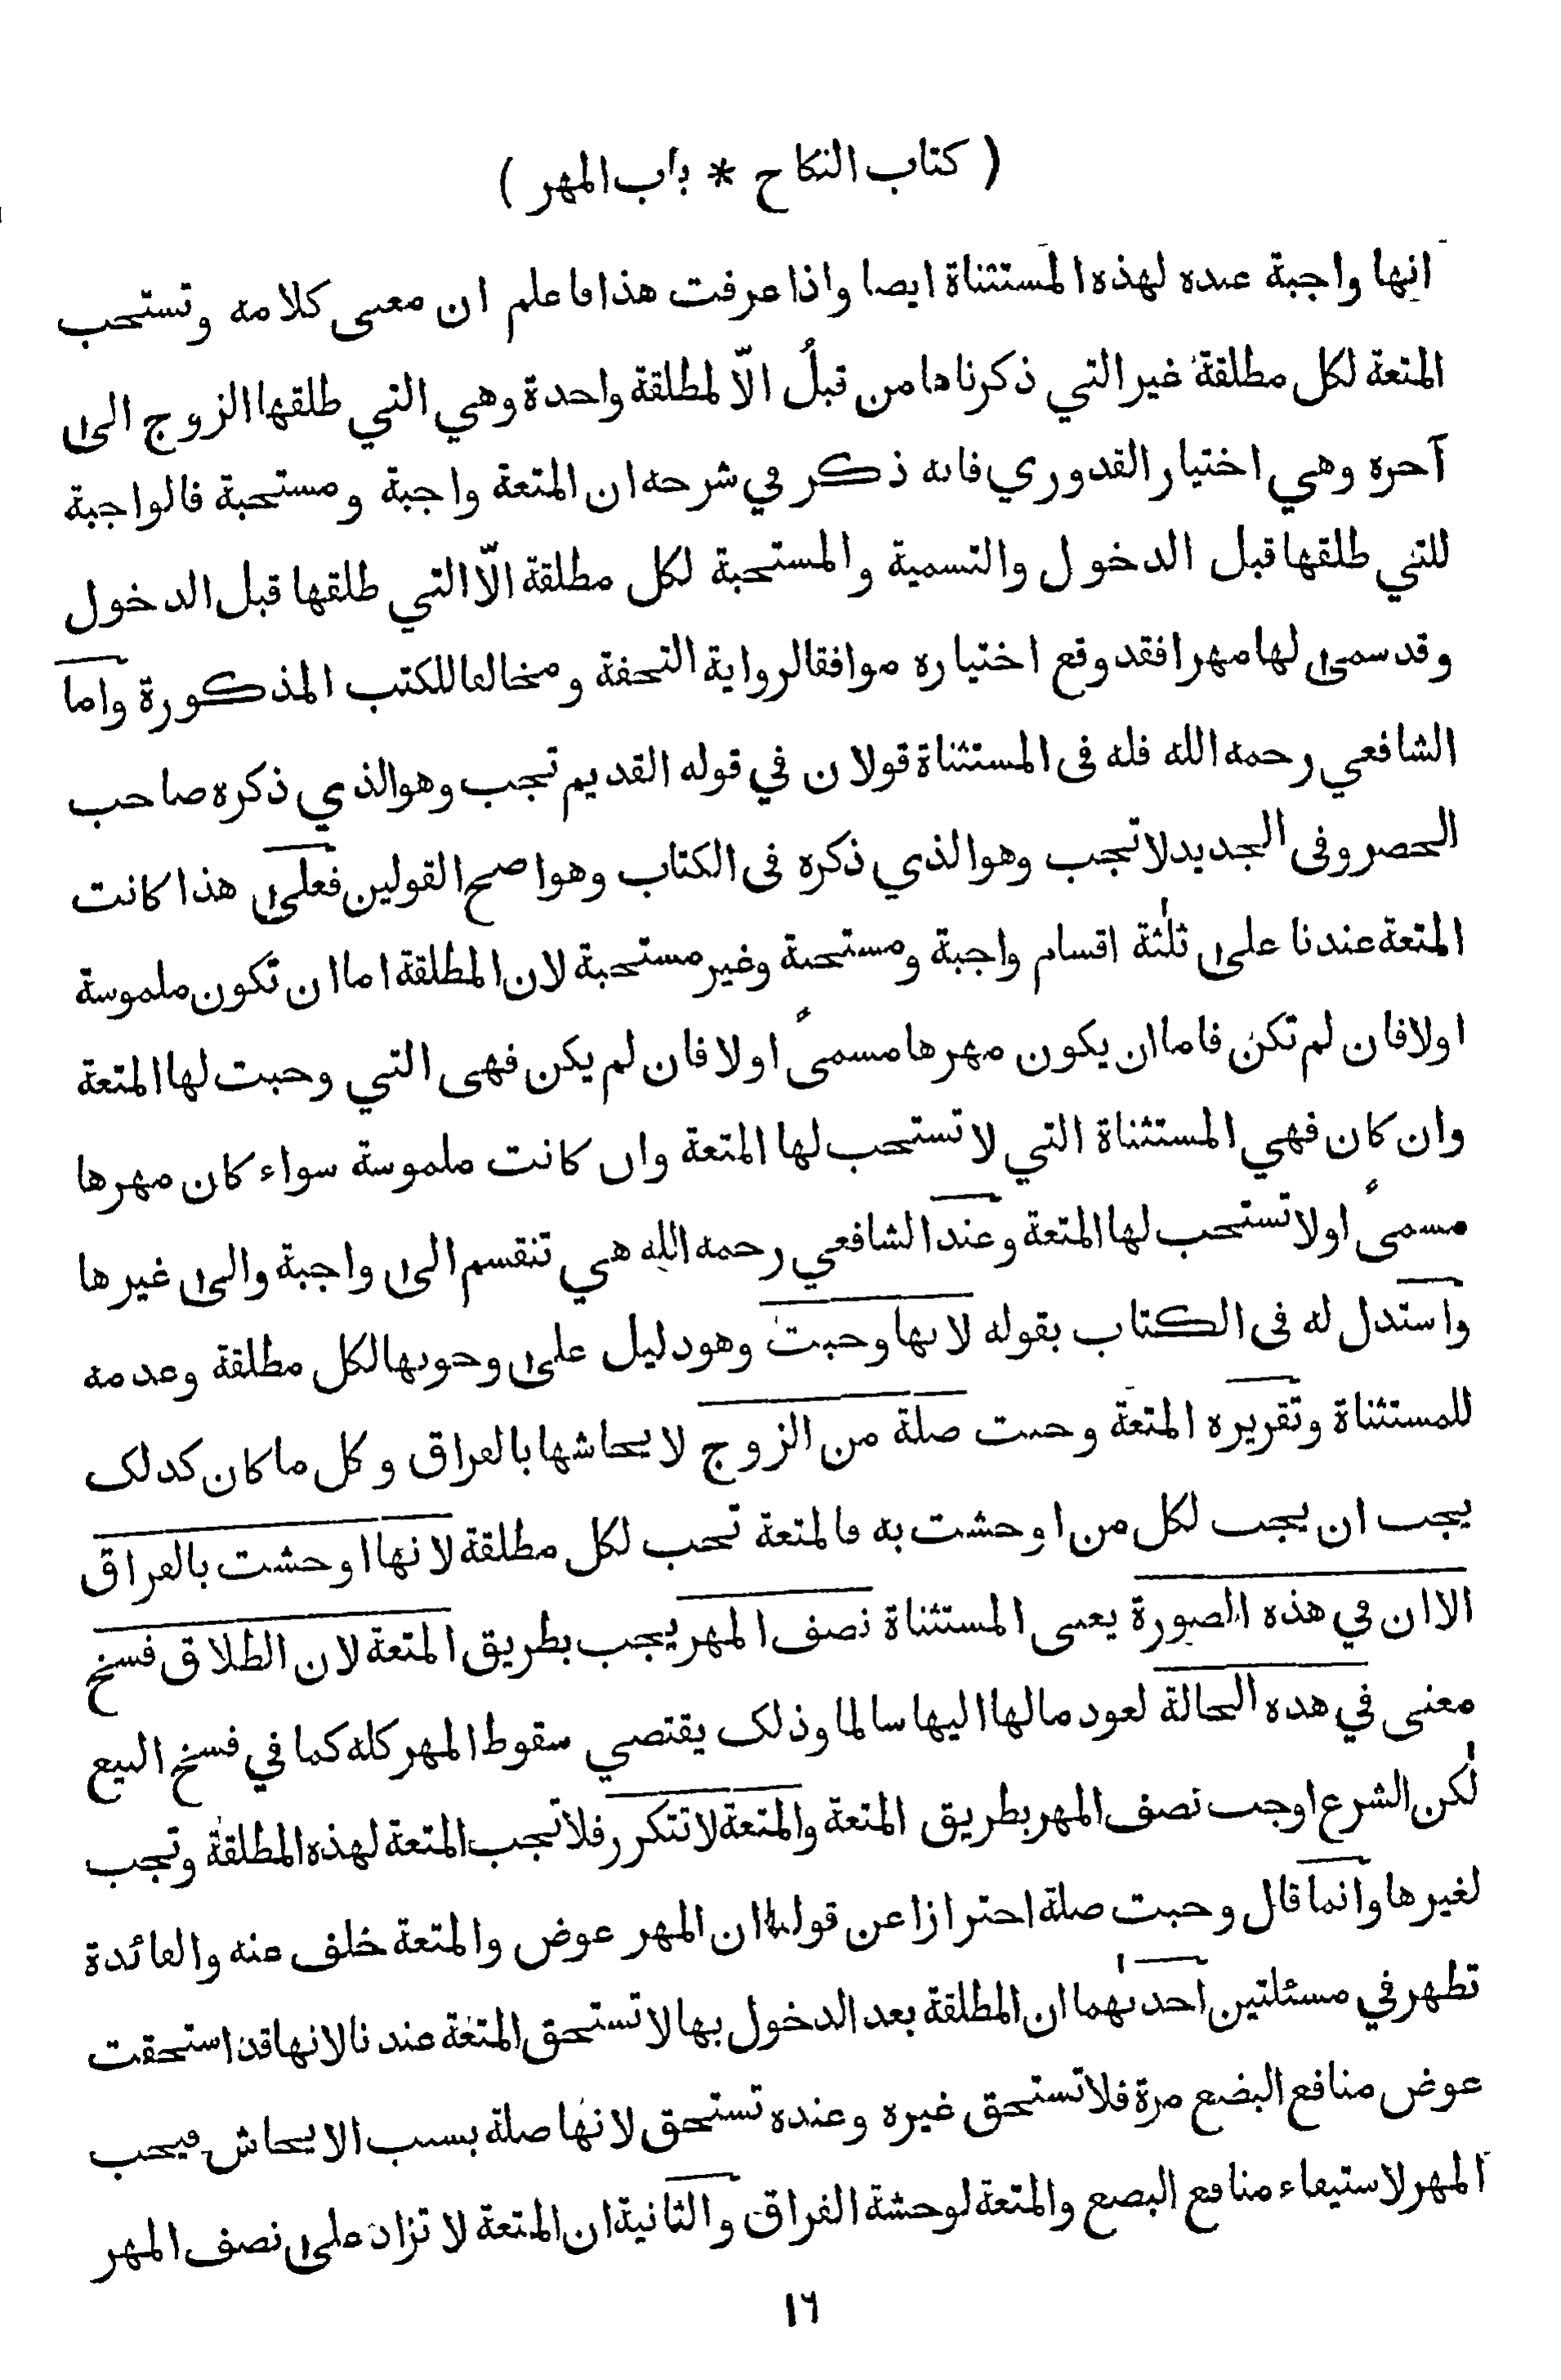 ( كتاب النكاح * باب المهر )
انها واجبة عنده لهذه المستثناة ايضا واذا عرفت هذا فاعلم ان معنى كلامه وتستحب
المتعة لكل مطلقة غير التي ذكرناها من قبلُ الّا لمطلقة واحدة وهي التي طلقها الزوج الى
آخره وهي اختيار القدوري فانه ذكر في شرحه ان المتعة واجبة ومستحبة فالواجبة
للتي طلقها قبل الدخول والتسمية والمستحبة لكل مطلقة الّا التي طلقها قبل الدخول
وقد سمى لها مهرا فقد وقع اختياره موافقا لرواية التحفة ومخالفا للكتب المذكورة واما
الشافعي رحمه الله فله فى المستثناة قولان في قوله القديم تجب وهو الذي ذكره صاحب
الحصر وفى الجديد لا تجب وهو الذي ذكره فى الكتاب وهو اصح القولين فعلى هذا كانت
المتعة عندنا على ثلٰثة اقسام واجبة ومستحبة وغير مستحبة لان المطلقة اما ان تكون ملموسة
اولا فان لم تكن فاما ان يكون مهرها مسمىً اولا فان لم يكن فهى التي وجبت لها المتعة
وان كان فهي المستثناة التي لا تستحب لها المتعة وان كانت ملموسة سواء كان مهرها
مسمىً اولا تستحب لها المتعة وعند الشافعي رحمه الله هي تنقسم الى واجبة والى غيرها
واستدل له فى الكتاب بقوله لانها وجبت وهو دليل على وجوبها لكل مطلقة وعدمه
للمستثناة وتقريره المتعة وجبت صلة من الزوج لايحاشها بالفراق وكل ما كان كذلك
يجب ان يجب لكل من اوحشت به فالمتعة تجب لكل مطلقة لانها اوحشت بالفراق
الا ان في هذه الصورة يعنى المستثناة نصف المهر يجب بطريق المتعة لان الطلاق فسخ
معنى في هذه الحالة لعود مالها اليها سالما وذلك يقتضي سقوط المهر كله كما في فسخ البيع
لٰكن الشرع اوجب نصف المهر بطريق المتعة والمتعة لا تتكرر فلا تجب المتعة لهذه المطلقة وتجب
لغيرها وانما قال وجبت صلة احترازا عن قولنا ان المهر عوض والمتعة خلف عنه والفائدة
تظهر في مسئلتين احدٰىهما ان المطلقة بعد الدخول بها لا تستحق المتعة عندنا لانها قد استحقت
عوض منافع البضع مرة فلا تستحق غيره وعنده تستحق لانها صلة بسبب الايحاش فيجب
المهر لاستيفاء منافع البضع والمتعة لوحشة الفراق والثانية ان المتعة لا تزاد على نصف المهر